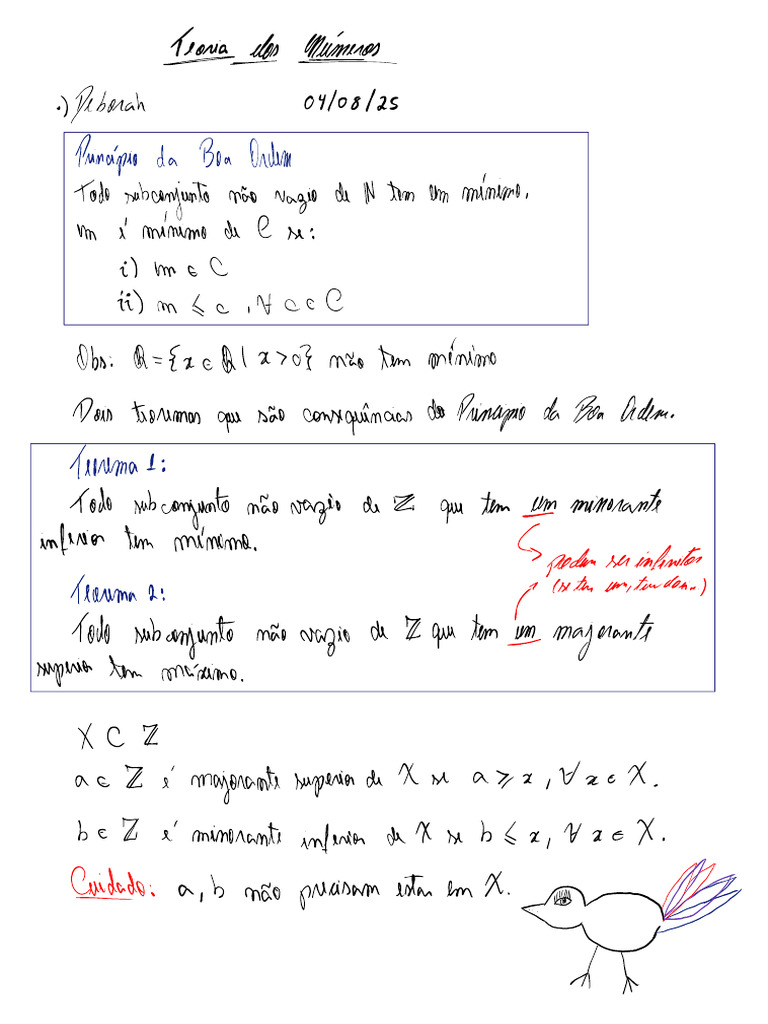 Teoria dos Números
•) Deborah 04/08/25
Princípio da Boa Ordem
Todo subconjunto não vazio de ℕ tem um mínimo.
m é mínimo de C se:
i) m ∈ C
ii) m ⩽ c , ∀ c ∈ C
Obs: ℝ = {x ∈ ℝ | x > 0} não tem mínimo
Dois teoremas que são consequências do Princípio da Boa Ordem.
Teorema 1:
Todo subconjunto não vazio de ℤ que tem um minorante
inferior tem mínimo.
podem ser infinitos
(se tem um, tem dois..)
Teorema 2:
Todo subconjunto não vazio de ℤ que tem um majorante
superior tem máximo.
X ⊂ ℤ
a ∈ ℤ é majorante superior de X se a ⩾ x , ∀ x ∈ X.
b ∈ ℤ é minorante inferior de X se b ⩽ x, ∀ x ∈ X.
Cuidado: a, b não precisam estar em X.